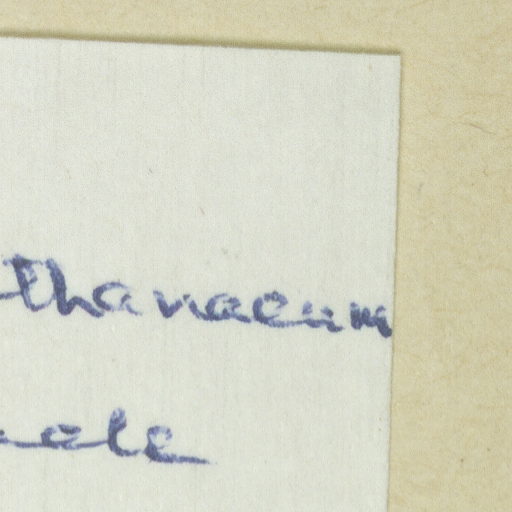 thanaeum
ale